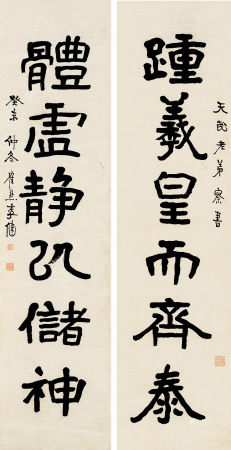 天民老弟察書
踵羲皇而齊泰
體虛靜以儲神
癸未仲冬李健